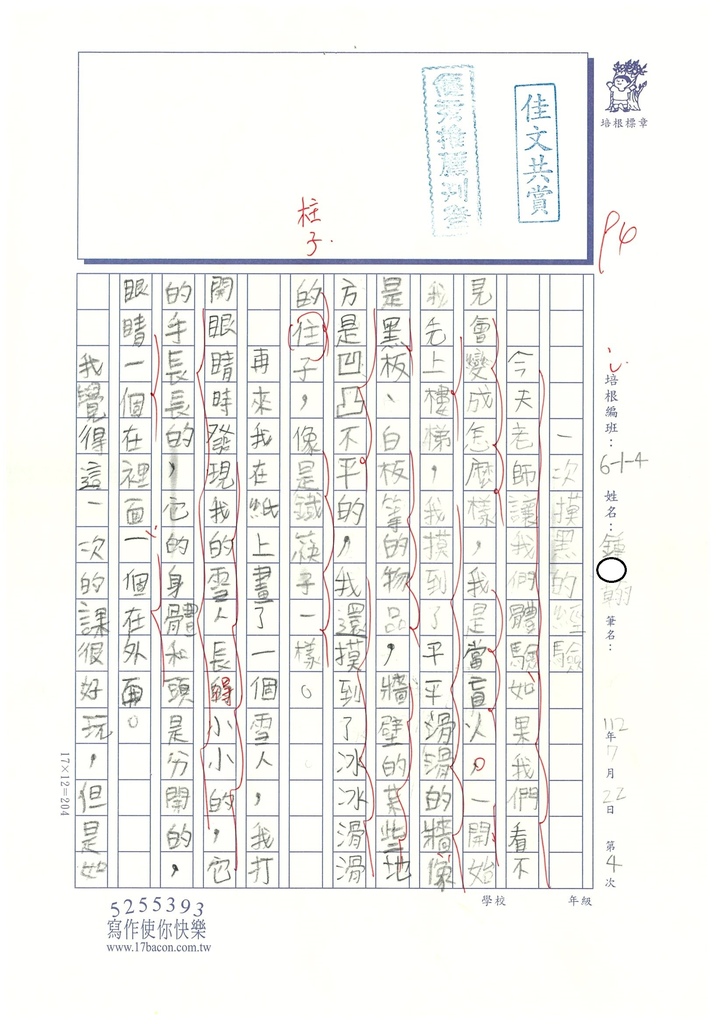 佳文共賞
優秀推薦刊登
培根標章
柱子.
94
培根編班：6-1-4 姓名：鍾 翱 筆名： 112年7月22日 第4次
學校 年級
一次摸黑的經驗
今天老師讓我們體驗如果我們看不
見會變成怎麼樣，我是當盲人。一開始
我先上樓梯，我摸到了平平滑滑的牆像
是黑板、白板等的物品，牆壁的某些地
方是凹凸不平的，我還摸到了冰冰滑滑
的往子，像是鐵筷子一樣。
再來我在紙上畫了一個雪人，我打
開眼睛時發現我的雪人長得小小的，它
的手長長的，它的身體和頭是分開的，
眼睛一個在裡面、一個在外面。
我覺得這一次的課很好玩，但是如
17×12=204
5255393
寫作使你快樂
www.17bacon.com.tw